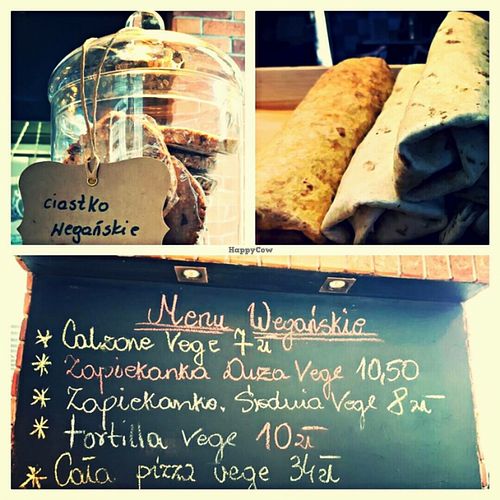 ciastko
wegańskie
HappyCow
Menu Wegańskie
* Calzone Vege 7zł
* Zapiekanka Duża Vege 10,50
* Zapiekanka Średnia Vege 8zł
* tortilla vege 10zł
* Cała pizza vege 34zł